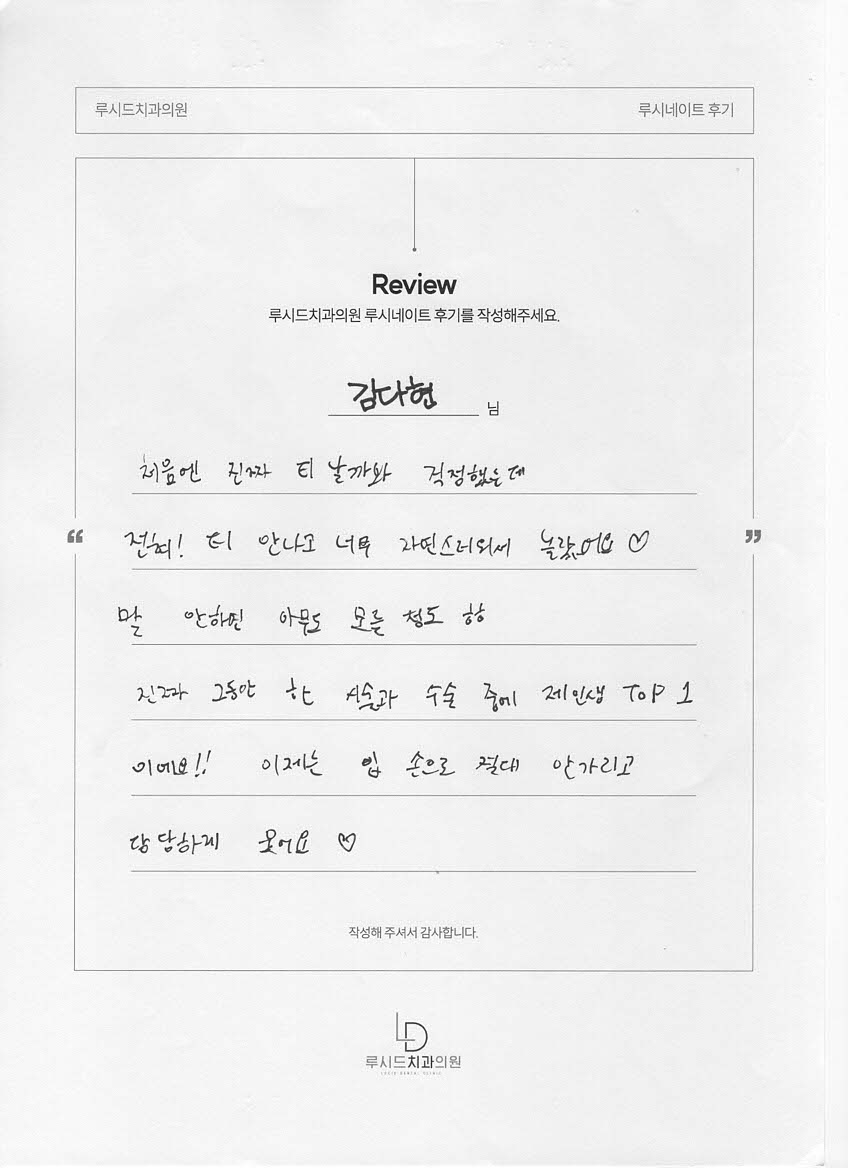 루시드치과의원 루시네이트 후기
Review
루시드치과의원 루시네이트 후기를 작성해주세요.
김다현 님
처음엔 진짜 티 날까봐 걱정했는데
“ 전혀! 티 안나고 너무 자연스러워서 놀랐어요 ♡ ”
말 안하면 아무도 모를 정도
진짜 그동안 한 시술과 수술 중에 제인생 TOP 1
이에요!! 이제는 입 손으로 절대 안가리고
당당하게 웃어요 ♡
작성해 주셔서 감사합니다.
LD
루시드치과의원
LUCID DENTAL CLINIC